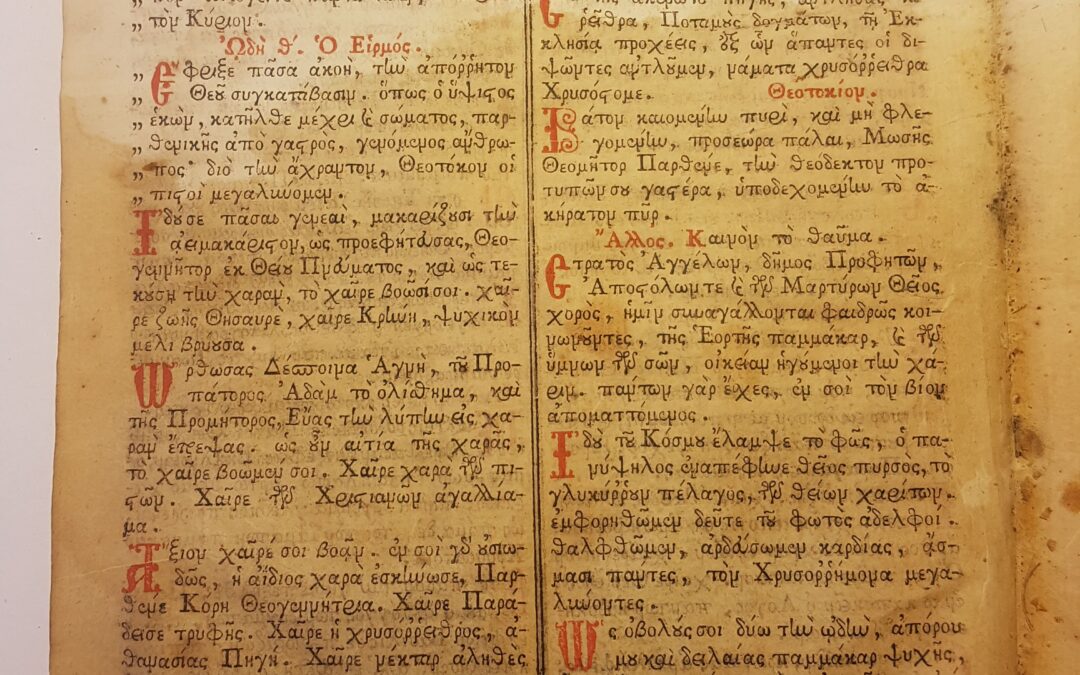 „ τὸν Κύριον.
Ὠδὴ θ'. Ὁ Εἱρμός.
„ Ἔφριξε πᾶσα ἀκοὴ, τὴν ἀπόῤῥητον
„ Θεοῦ συγκατάβασιν. ὅπως ὁ ὕψιστος
„ ἑκὼν, κατῆλθε μέχρι καὶ σώματος, παρ-
„ θενικῆς ἀπὸ γαστρὸς, γενόμενος ἄνθρω-
„ πος· διὸ τὴν ἄχραντον, Θεοτόκον οἱ
„ πιστοὶ μεγαλύνωμεν.
Ἰδού σε πᾶσαι γενεαὶ, μακαρίζουσι τὴν
ἀειμακάριστον, ὡς προεφήτευσας, Θεο-
γεννῆτορ ἐκ Θείου Πνεύματος, καὶ ὡς τε-
κούσῃ τὴν χαρὰν, τὸ χαῖρε βοῶσί σοι. χαῖ-
ρε ζωῆς Θησαυρὲ, χαῖρε Κρήνη, ψυχικὸν
μέλι βρύουσα.
Ὤρθωσας Δέσποινα Ἁγνὴ, τοῦ Προ-
πάτορος Ἀδὰμ τὸ ὀλίσθημα, καὶ
τῆς Προμήτορος, Εὔας τὴν λύπην εἰς χα-
ρὰν ἔτρεψας. ὡς οὖν αἰτία τῆς χαρᾶς,
τὸ χαῖρε βοῶμέν σοι. Χαῖρε χαρὰ τῶν πι-
στῶν. Χαῖρε τῶν Χριστιανῶν ἀγαλλία-
μα.
Ἄξιον χαῖρέ σοι βοᾷν. ἐν σοὶ γὰρ οὐσιω-
δῶς, ἡ ἀΐδιος χαρὰ ἐσκήνωσε, Παρ-
θένε Κόρη Θεογεννήτρια. Χαῖρε Παρά-
δεισε τρυφῆς. Χαῖρε ἡ χρυσόῤῥειθρος, ἀ-
θανασίας Πηγή. Χαῖρε νέκταρ ἀληθὲς
ρεῖθρα, Ποταμοὺς δογμάτων, τῇ Ἐκ-
κλησίᾳ προχέεις, ἐξ ὧν ἅπαντες οἱ δι-
ψῶντες ἀντλοῦμεν, νάματα χρυσόῤῥειθρα
Χρυσόστομε. Θεοτοκίον.
Βάτον καιομένην πυρὶ, καὶ μὴ φλε-
γομένην, προσεώρα πάλαι, Μωσῆς
Θεομῆτορ Παρθένε, τὴν θεόδεκτον προ-
τυπῶν σου γαστέρα, ὑποδεχομένην τὸ ἀ-
κήρατον πῦρ.
Ἄλλος. Καινὸν τὸ θαῦμα.
Στρατὸς Ἀγγέλων, δῆμος Προφητῶν,
Ἀποστόλων τε καὶ τῶν Μαρτύρων Θεῖος
χορὸς, ἡμῖν συναγάλλονται φαιδρῶς κοι-
νωνοῦντες, τῆς Ἑορτῆς παμμάκαρ, καὶ τῶν
ὕμνων τῶν σῶν, οἰκείαν ἡγούμενοι τὴν χά-
ριν. πάντων γὰρ ἔχεις, ἐν σοὶ τὸν βίον
ἀποματτόμενος.
Ἰδοὺ τοῦ Κόσμου ἔλαμψε τὸ φῶς, ὁ πα-
νύψηλος ἐναπέφῃνε θεῖος πυρσὸς, τὸ
γλυκύῤῥουν πέλαγος, τῶν θείων χαρίτων.
ἐμφορηθῶμεν δεῦτε τοῦ φωτὸς ἀδελφοί.
θαλφθῶμεν, ἀρδεύσωμεν καρδίας, ᾄσ-
μασι πάντες, τὸν Χρυσοῤῥήμονα μεγα-
λύνοντες.
Ὡς ὀβολούς σοι δύω τὴν ᾠδὴν, ἀπόρου
μου καὶ δειλαίας παμμάκαρ ψυχῆς,